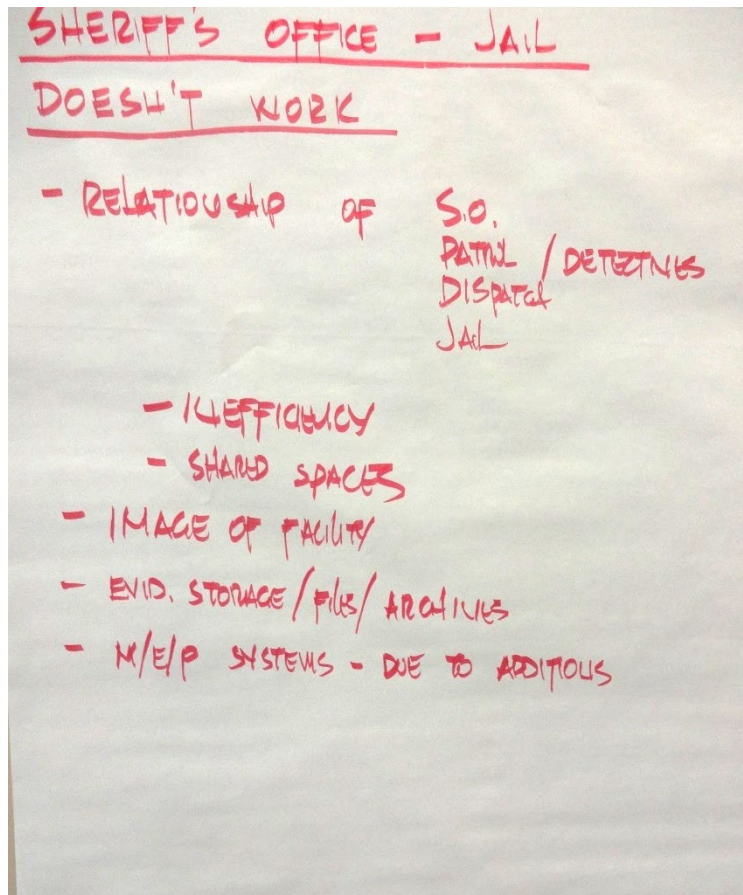 SHERIFF'S OFFICE - JAIL
DOESN'T WORK
- RELATIONSHIP OF S.O.
PATROL / DETECTIVES
DISPATCH
JAIL
- INEFFICIENCY
- SHARED SPACES
- IMAGE OF FACILITY
- EVID. STORAGE / FILES / ARCHIVES
- M/E/P SYSTEMS - DUE TO ADDITIONS